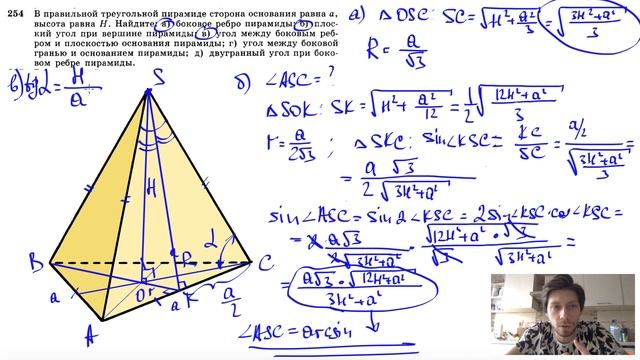 254 В правильной треугольной пирамиде сторона основания равна a,
высота равна H. Найдите: а) боковое ребро пирамиды; б) плос-
кий угол при вершине пирамиды; в) угол между боковым реб-
ром и плоскостью основания пирамиды; г) угол между боковой
гранью и основанием пирамиды; д) двугранный угол при боко-
вом ребре пирамиды.
а) △OSC: SC = √(H² + a²/3) = √((3H² + a²)/3)
R = a/√3
в) tg α = H/a
б) ∠ASC = ?
△SOK: SK = √(H² + a²/12) = 1/2 √((12H² + a²)/3)
r = a/(2√3); △SKC: sin∠KSC = KC/SC = (a/2)/√((3H² + a²)/3) =
= a√3/(2√(3H² + a²))
sin∠ASC = sin 2∠KSC = 2 sin∠KSC · cos∠KSC =
= 2 · a√3/(2√(3H² + a²)) · √(12H² + a²) · √3/(√3 √(3H² + a²)) =
= a√3 · √(12H² + a²)/(3H² + a²)
∠ASC = arcsin
S
H
B
C
A
O
r
R
K
α
a
a
a/2